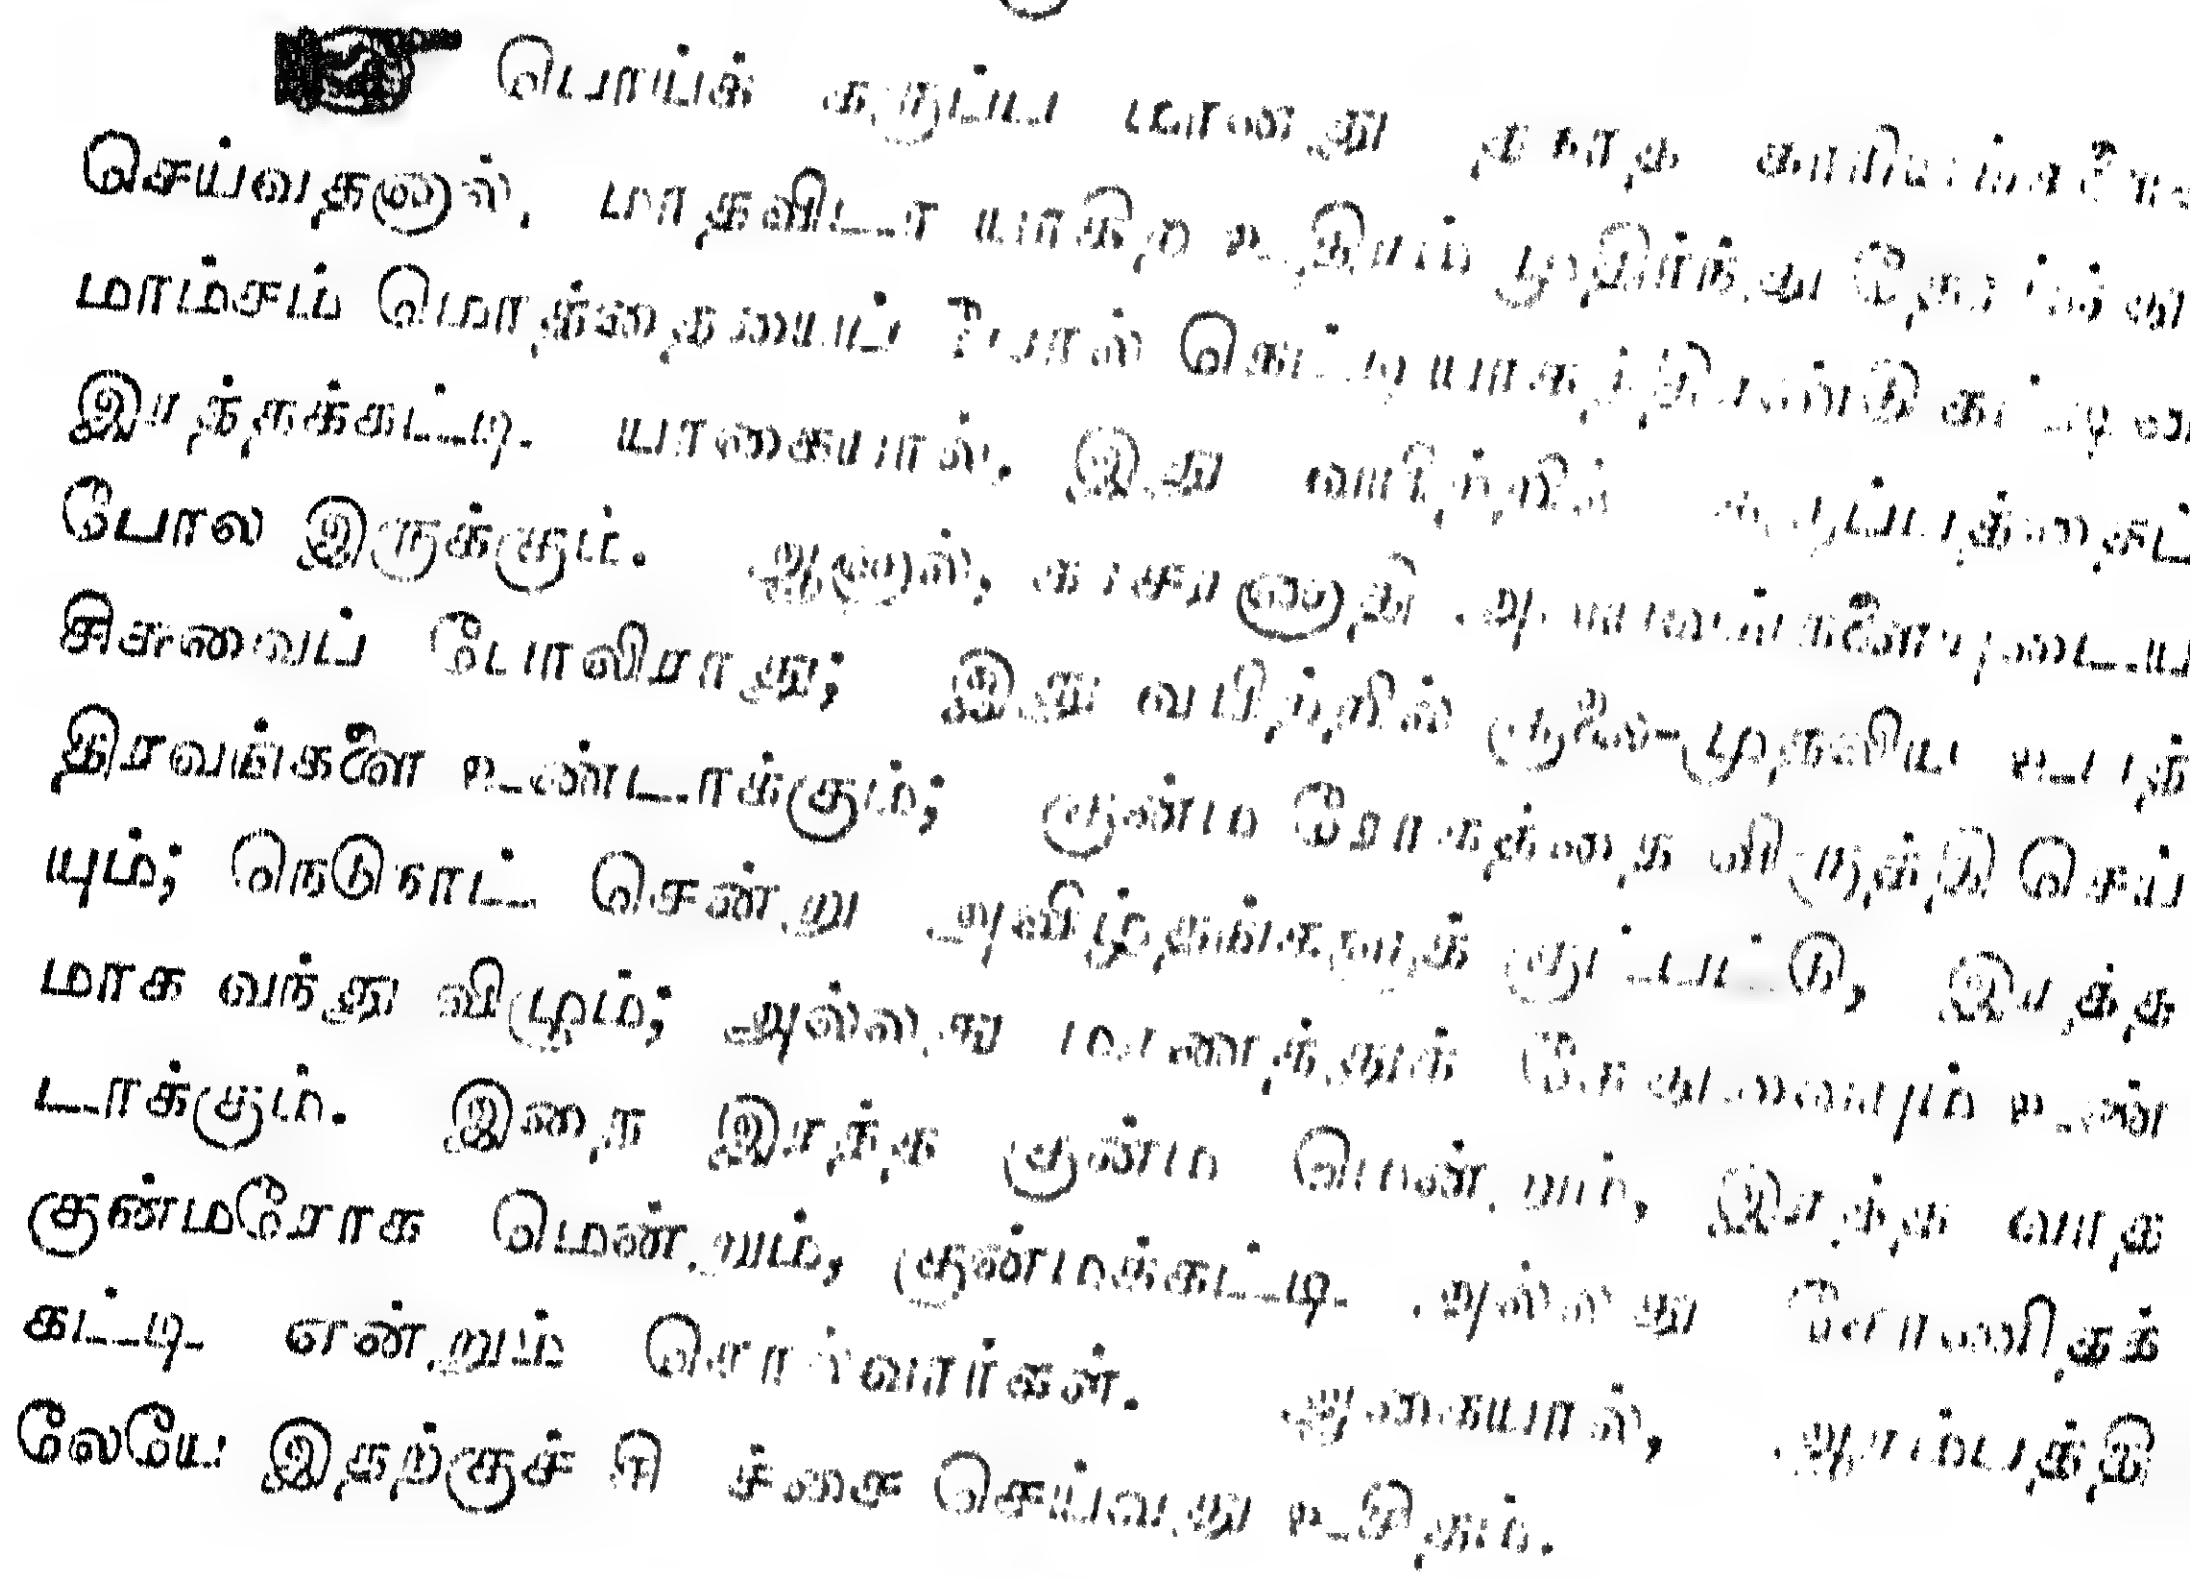 பொய்க் கருப்ப மானது தகாத
செய்வதனால், மாதவிடா யாகிற உதிரம் முதிர்ந்து
மாம்சம் மொத்தையைப் போல் கெட்டியாகத்திரண்டு கட்டி
இரத்தக்கட்டி யாகையால். இது வயிற்றில்
போல இருக்கும். ஆனால், அவயவங்களையுடைய
சிசுவைப் போலிராது; இது வயிற்றில் சூலை-முதலிய உபத்
திரவங்களை உண்டாக்கும்; குன்ம ரோகத்தை விருத்தி செய்
யும்; நெடுநாட் சென்று அவிழ்தங்களுக் குட்பட்டு, இரத்த
மாக வந்து விழும்; அல்லது மரணத்துக் கேதுவையும் உண்
டாக்கும். இதை இரத்த குன்ம மென்றும், இரத்த வாத
குன்மரோக மென்றும், குன்மக்கட்டி அல்லது சோணிதக்
கட்டி என்றும் சொல்வார்கள். ஆகையால், ஆரம்பத்தி
லேயே இதற்குச் சிகிச்சை செய்வது உசிதம்.